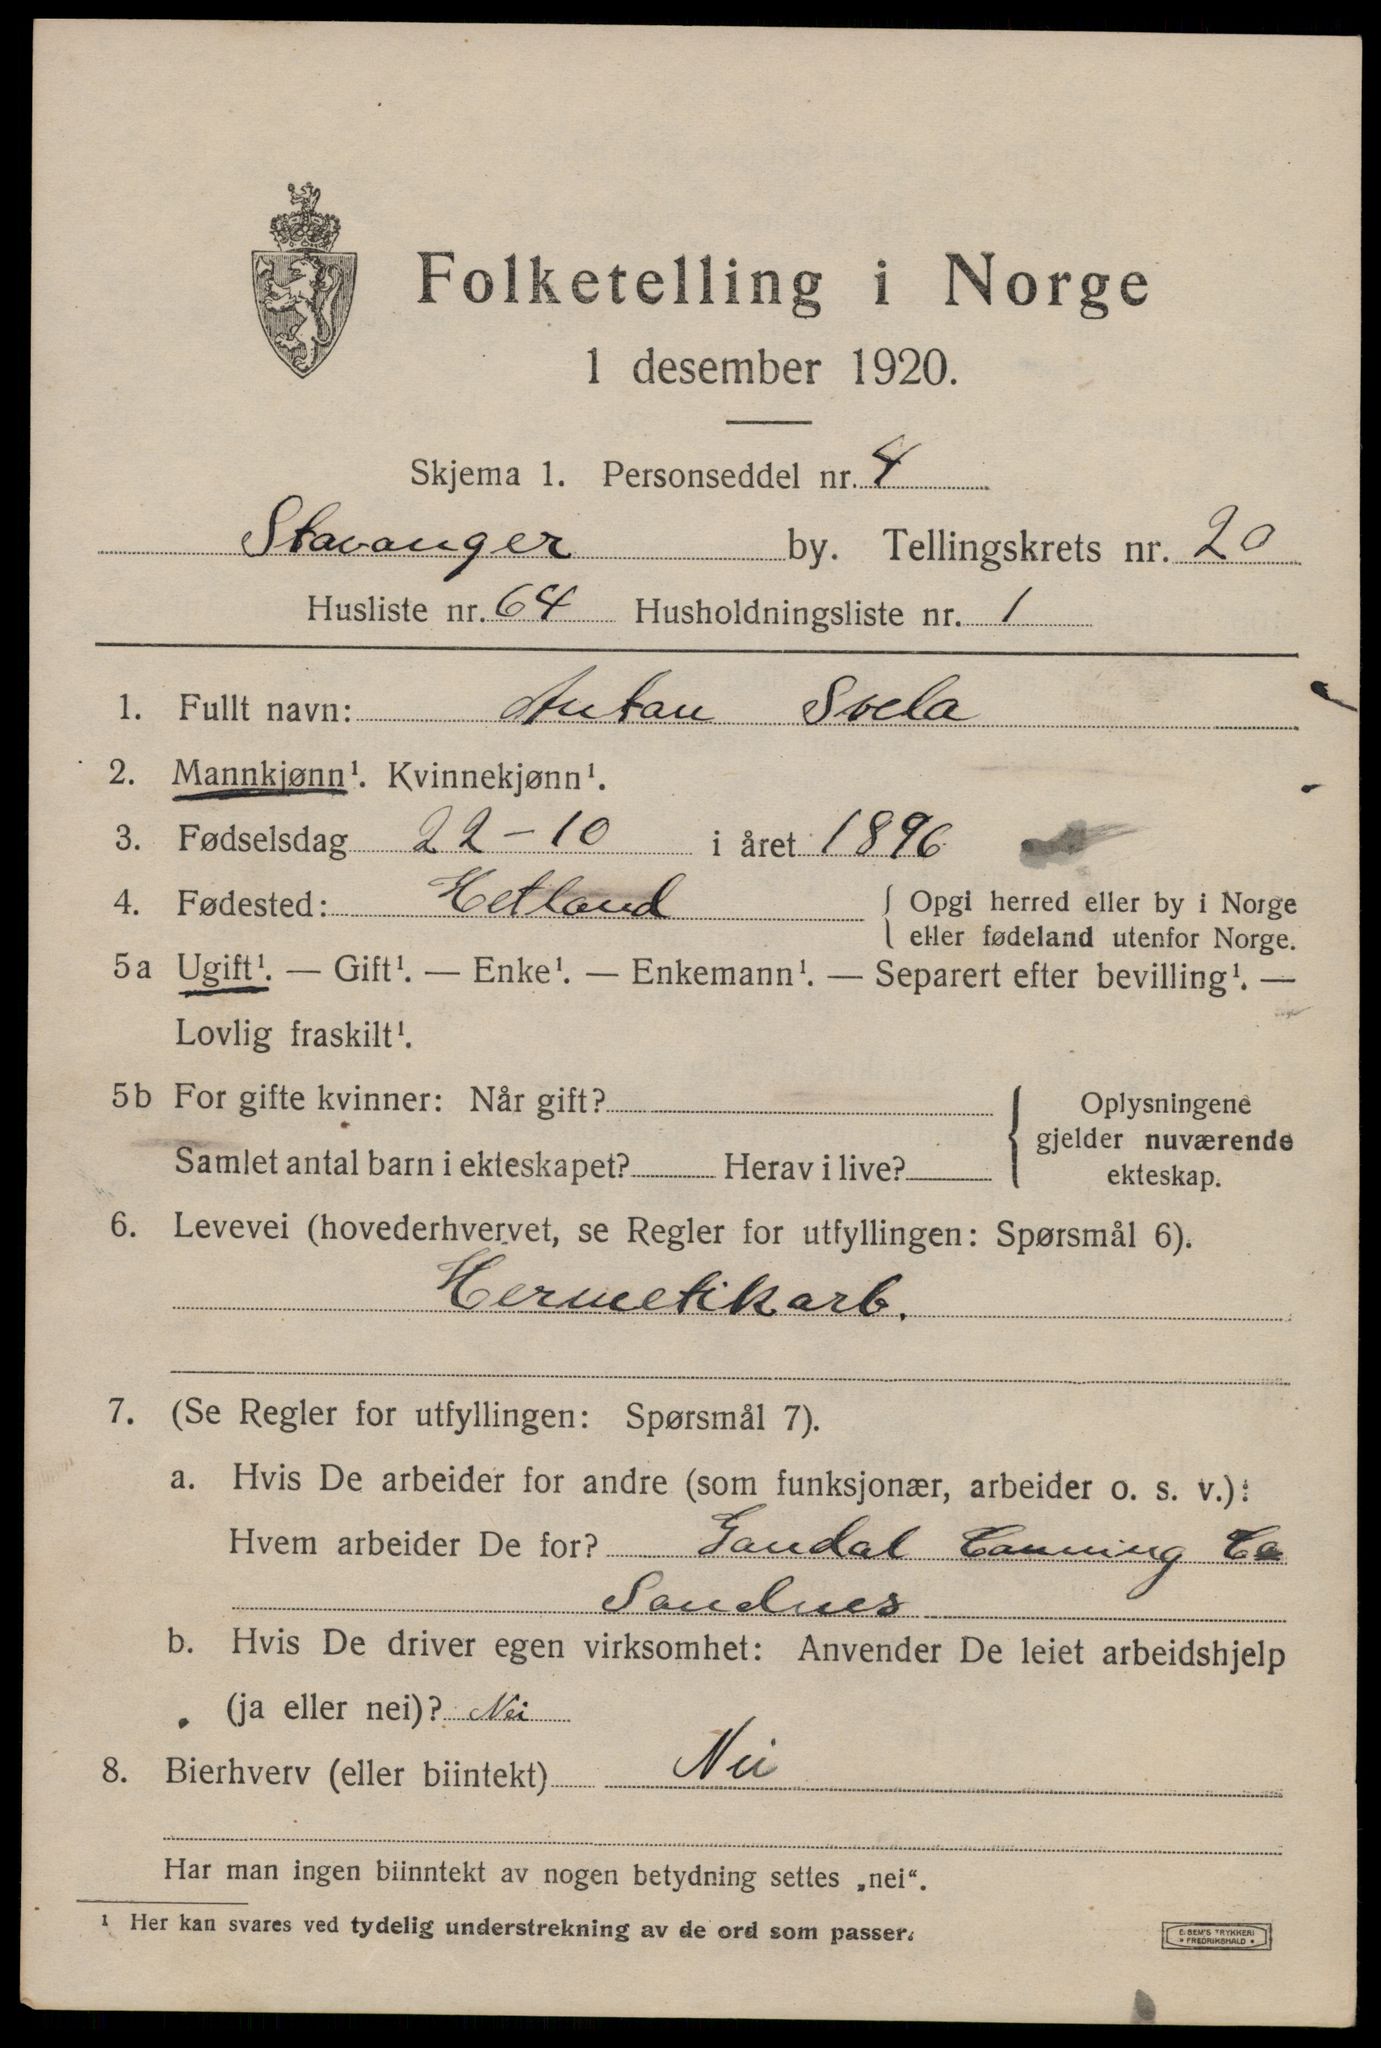 Folketelling i Norge
1 desember 1920.
Skjema 1. Personseddel nr. 4
Stavanger by. Tellingskrets nr. 20
Husliste nr. 64 Husholdningsliste nr. 1
1. Fullt navn: Anton Svela
2. Mannkjønn¹. Kvinnekjønn¹.
3. Fødselsdag 22-10 i året 1896
4. Fødested: Hetland { Opgi herred eller by i Norge
eller fødeland utenfor Norge.
5a Ugift¹. — Gift¹. — Enke¹. — Enkemann¹. — Separert efter bevilling¹. —
Lovlig fraskilt¹.
5b For gifte kvinner: Når gift? { Oplysningene
gjelder nuværende
Samlet antal barn i ekteskapet? Herav i live? ekteskap.
6. Levevei (hovederhvervet, se Regler for utfyllingen: Spørsmål 6).
Hermetikarb.
7. (Se Regler for utfyllingen: Spørsmål 7).
a. Hvis De arbeider for andre (som funksjonær, arbeider o. s. v.):
Hvem arbeider De for? Gandal Canning Co
Sandnes
b. Hvis De driver egen virksomhet: Anvender De leiet arbeidshjelp
(ja eller nei)? Nei
8. Bierhverv (eller biintekt) Nei
Har man ingen biinntekt av nogen betydning settes „nei“.
¹ Her kan svares ved tydelig understrekning av de ord som passer.
E. SEM'S TRYKKERI
* FREDRIKSHALD *